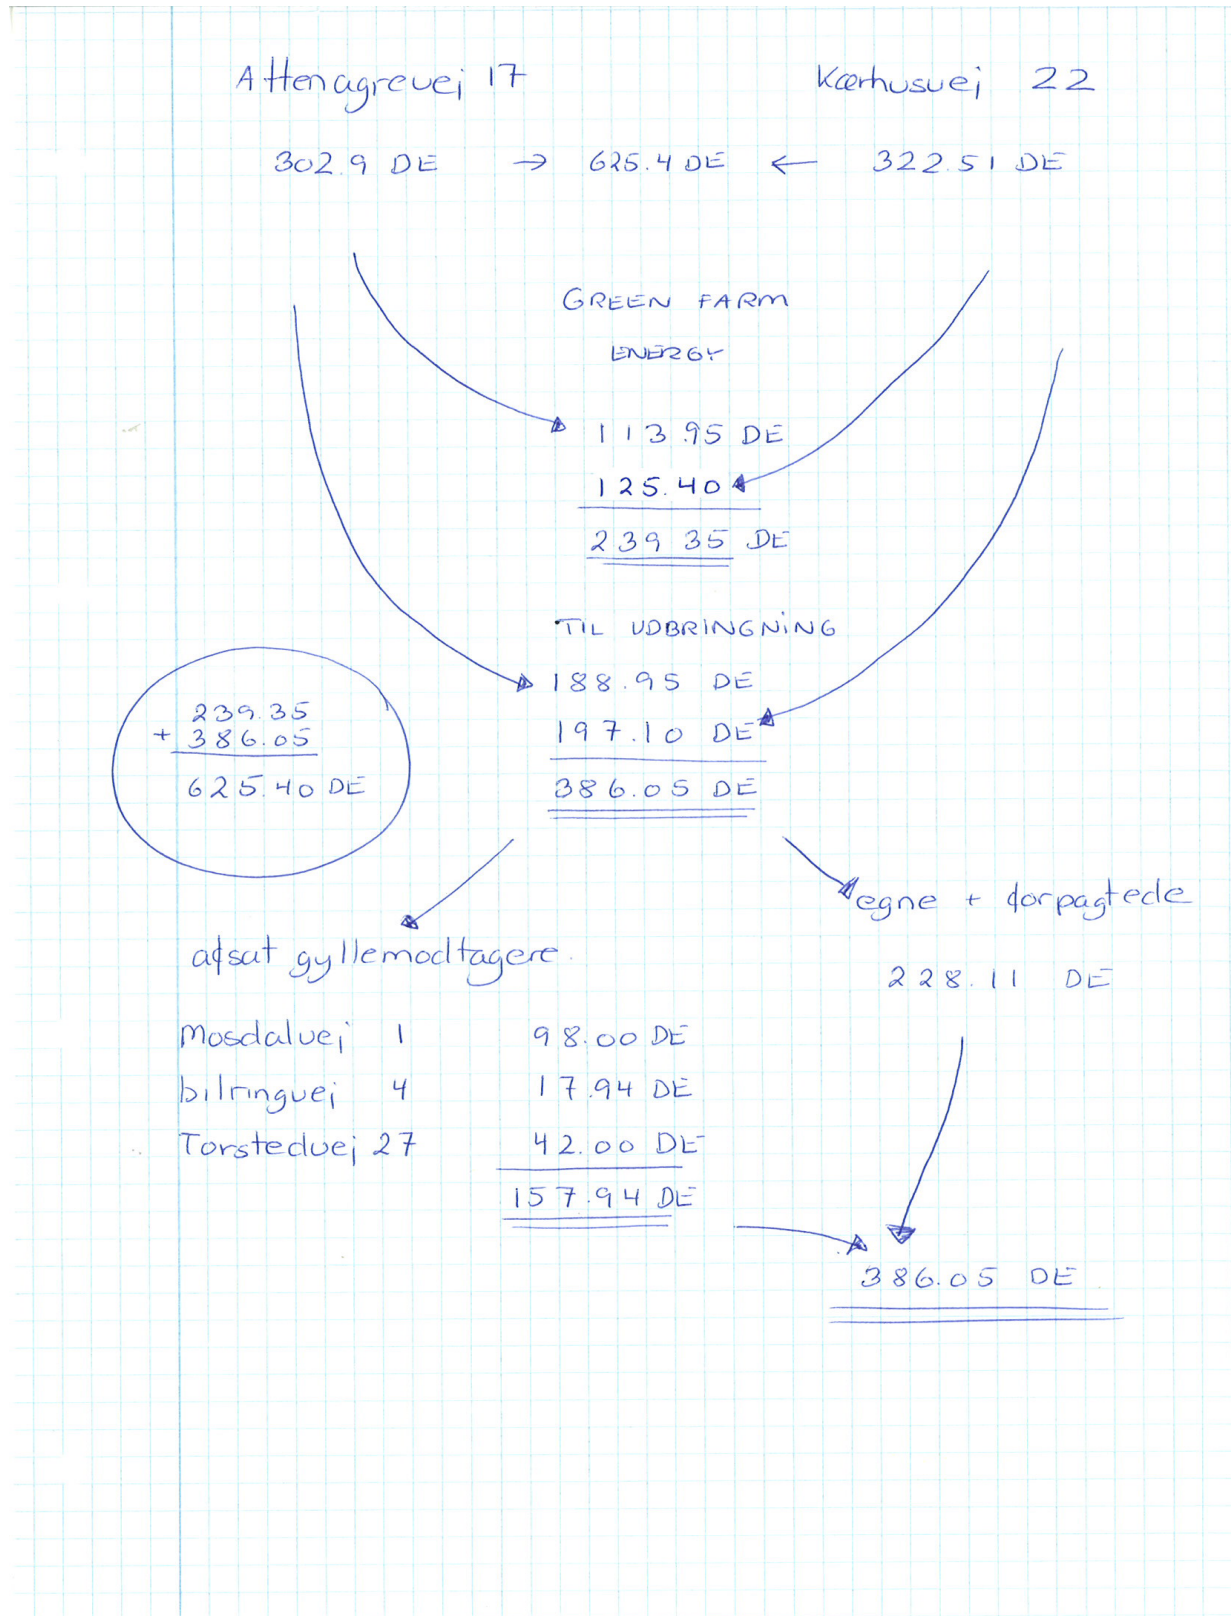 Attenagrevej 17 Kærhusvej 22
302.9 DE → 625.4 DE ← 322.51 DE
GREEN FARM
ENERGY
113.95 DE
125.40
239 35 DE
TIL UDBRINGNING
188.95 DE
197.10 DE
386.05 DE
239.35
+ 386.05
625.40 DE
egne + forpagtede
228.11 DE
afsat gyllemodtagere.
Mosdalvej 1 98.00 DE
bilringvej 4 17.94 DE
Torstedvej 27 42.00 DE
157.94 DE
386.05 DE